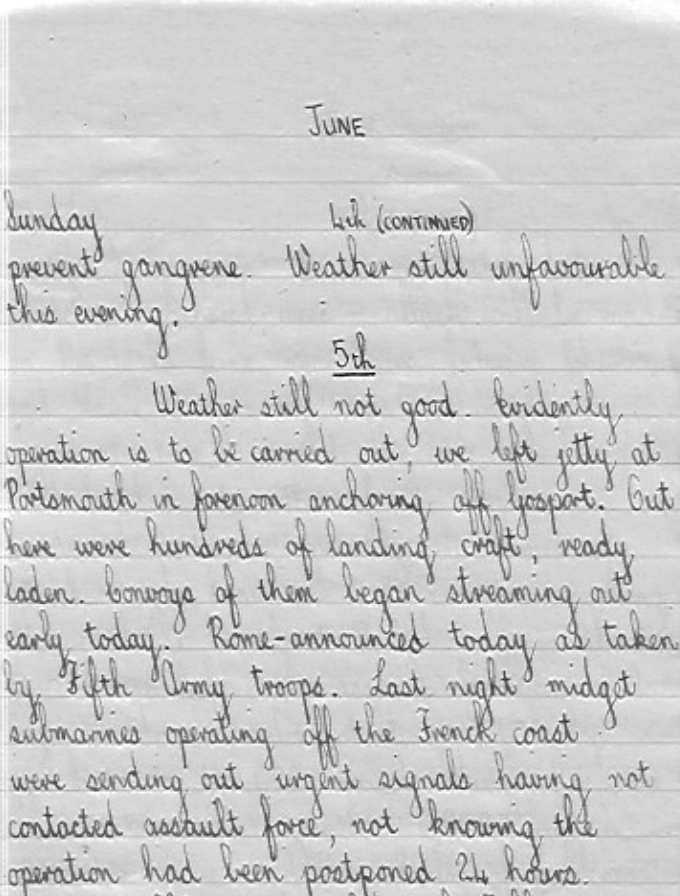 JUNE
Sunday 4th (CONTINUED)
prevent gangrene. Weather still unfavourable
this evening.
5th
Weather still not good. Evidently
operation is to be carried out, we left jetty at
Portsmouth in forenoon anchoring off Gosport. Out
here were hundreds of landing craft, ready
laden. Convoys of them began streaming out
early today. Rome-announced today as taken
by Fifth Army troops. Last night midget
submarines operating off the French coast
were sending out urgent signals having not
contacted assault force, not knowing the
operation had been postponed 24 hours.